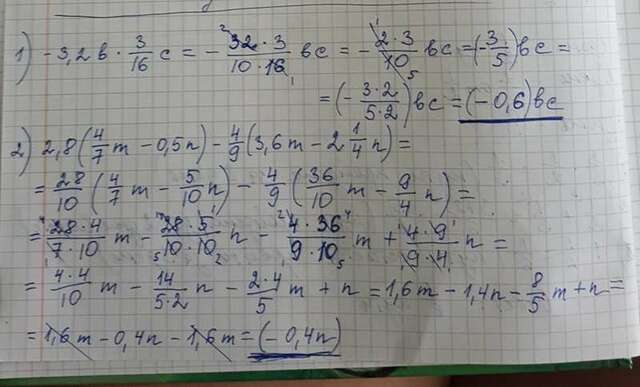 1) -3,2b · 3/16 c = - 32·3/10·16 bc = - 2·3/10 bc = (-3/5)bc =
= (- 3·2/5·2)bc = (-0,6)bc
2) 2,8(4/7 m - 0,5n) - 4/9(3,6m - 2 1/4 n) =
= 28/10 (4/7 m - 5/10 n) - 4/9 (36/10 m - 9/4 n) =
= 28·4/7·10 m - 28·5/10·10 n - 4·36/9·10 m + 4·9/9·4 n =
= 4·4/10 m - 14/5·2 n - 2·4/5 m + n = 1,6m - 1,4n - 8/5 m + n =
= 1,6m - 0,4n - 1,6m = (-0,4n)